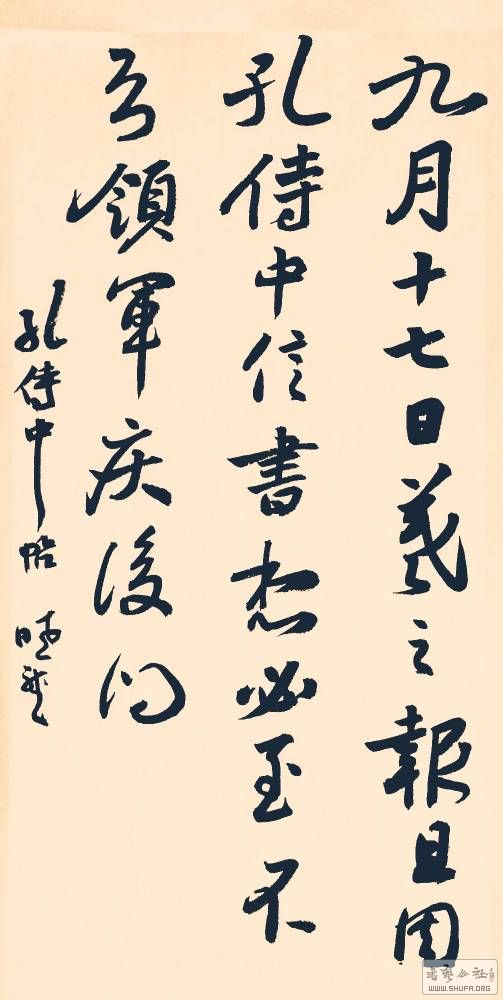 九月十七日羲之報且因
孔侍中信書想必至不
知領軍疾後問
孔侍中帖
书艺公社
WWW.SHUFA.ORG